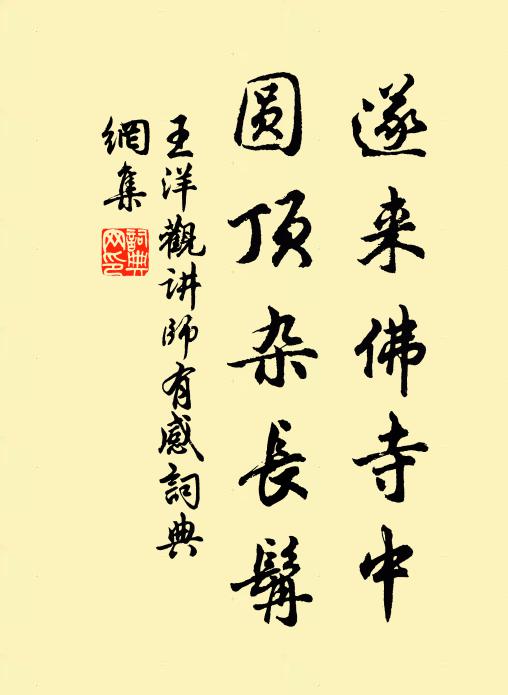 遂来佛寺中
圆顶杂長髯
王洋觀讲师有感詞典
網集
詞典
网印